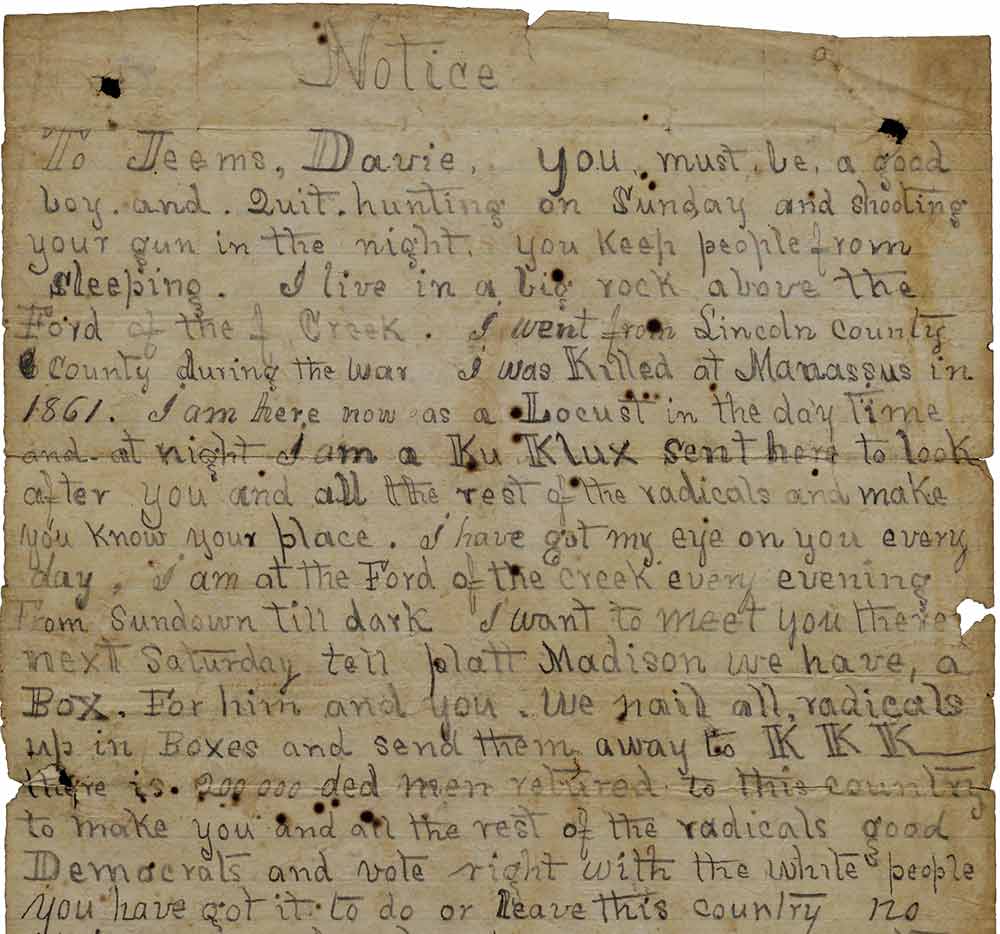 Notice
To Jeems, Davie, you, must, be, a good
boy. and. Quit. hunting on Sunday and shooting
your gun in the night. you keep people from
sleeping. I live in a big rock above the
Ford of the Creek. I went from Lincoln county
County during the war I was Killed at Manassus in
1861. I am here now as a Locust in the day Time
and at night I am a Ku Klux sent here to look
after you and all the rest of the radicals and make
you know your place. I have got my eye on you every
day, I am at the Ford of the creek every evening
From Sundown till dark I want to meet you there
next Saturday tell platt Madison we have, a
Box. For him and you. We nail all, radicals
up in Boxes and send them away to K K K
there is. 200 000 ded men retured to this country
to make you and all the rest of the radicals good
Democrats and vote right with the white people
you have got it to do or leave this country no